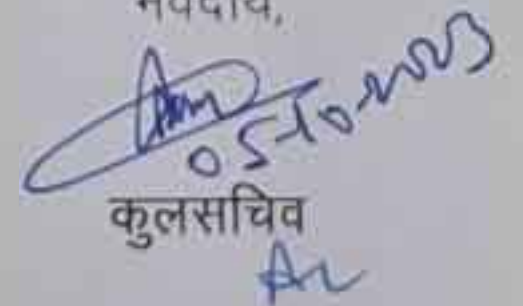 भवदीय,
05-10-2023
कुलसचिव